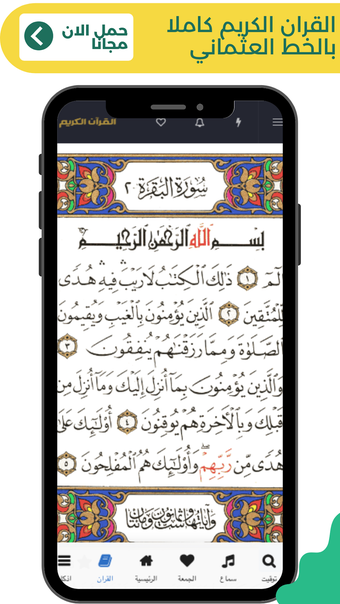 القران الكريم كاملا
بالخط العثماني
حمل الان
مجانا
القرآن الكريم
سُورَةُ البَقَرَةِ ٢
بِسْمِ اللَّهِ الرَّحْمَٰنِ الرَّحِيمِ
الٓمٓ ١ ذَٰلِكَ الْكِتَٰبُ لَا رَيْبَ فِيهِ هُدًى
لِّلْمُتَّقِينَ ٢ الَّذِينَ يُؤْمِنُونَ بِالْغَيْبِ وَيُقِيمُونَ
الصَّلَوٰةَ وَمِمَّا رَزَقْنَٰهُمْ يُنفِقُونَ ٣
وَالَّذِينَ يُؤْمِنُونَ بِمَا أُنزِلَ إِلَيْكَ وَمَا أُنزِلَ مِن
قَبْلِكَ وَبِالْآخِرَةِ هُمْ يُوقِنُونَ ٤ أُولَٰئِكَ عَلَىٰ
هُدًى مِّن رَّبِّهِمْ وَأُولَٰئِكَ هُمُ الْمُفْلِحُونَ ٥
وَآيَاتُهَا سِتٌّ وَثَمَانُونَ وَمِائَتَانِ
توقيت
سماع
الجمعة
الرئيسية
القرآن
اذكا